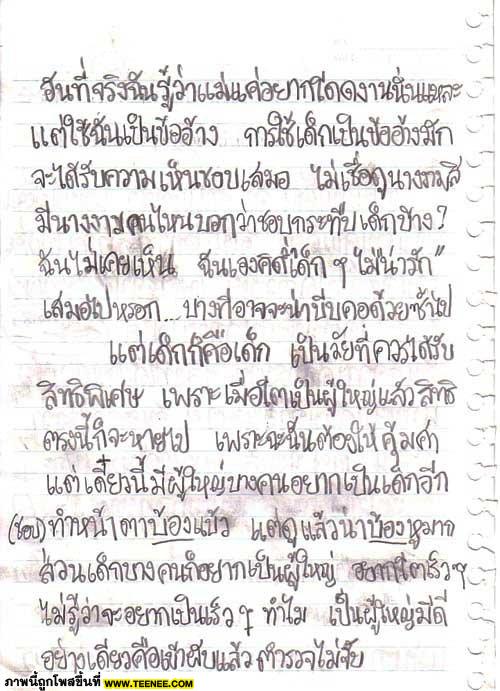 อันที่จริงฉันรู้ว่าแม่แค่อยากโดดงานนั่นแหละ
แต่ใช้ฉันเป็นข้ออ้าง การใช้เด็กเป็นข้ออ้างมัก
จะได้รับความเห็นชอบเสมอ ไม่เชื่อดูนางงามสิ
มีนางงามคนไหนบอกว่าชอบกระทืบเด็กบ้าง?
ฉันไม่เคยเห็น ฉันเองคิดว่าเด็ก ๆ ไม่น่ารัก"
เสมอไปหรอก... บางทีอาจจะน่าบีบคอด้วยซ้ำไป
แต่เด็กก็คือเด็ก เป็นวัยที่ควรได้รับ
สิทธิพิเศษ เพราะเมื่อโตเป็นผู้ใหญ่แล้วสิทธิ
ตรงนี้ก็จะหายไป เพราะฉะนั้นต้องใช้ให้คุ้มค่า
แต่เดี๋ยวนี้มีผู้ใหญ่บางคนอยากเป็นเด็กอีก
(ชอบ) ทำหน้าตาบ้องแบ๊ว แต่ดูแล้วน่าบ้องหูมาก
ส่วนเด็กบางคนก็อยากเป็นผู้ใหญ่ อยากโตเร็วๆ
ไม่รู้ว่าจะอยากเป็นเร็ว ๆ ทำไม เป็นผู้ใหญ่มีดี
อย่างเดียวคือเข้าผับแล้วตำรวจไม่จับ
ภาพนี้ถูกโพสขึ้นที่ www.TEENEE.com